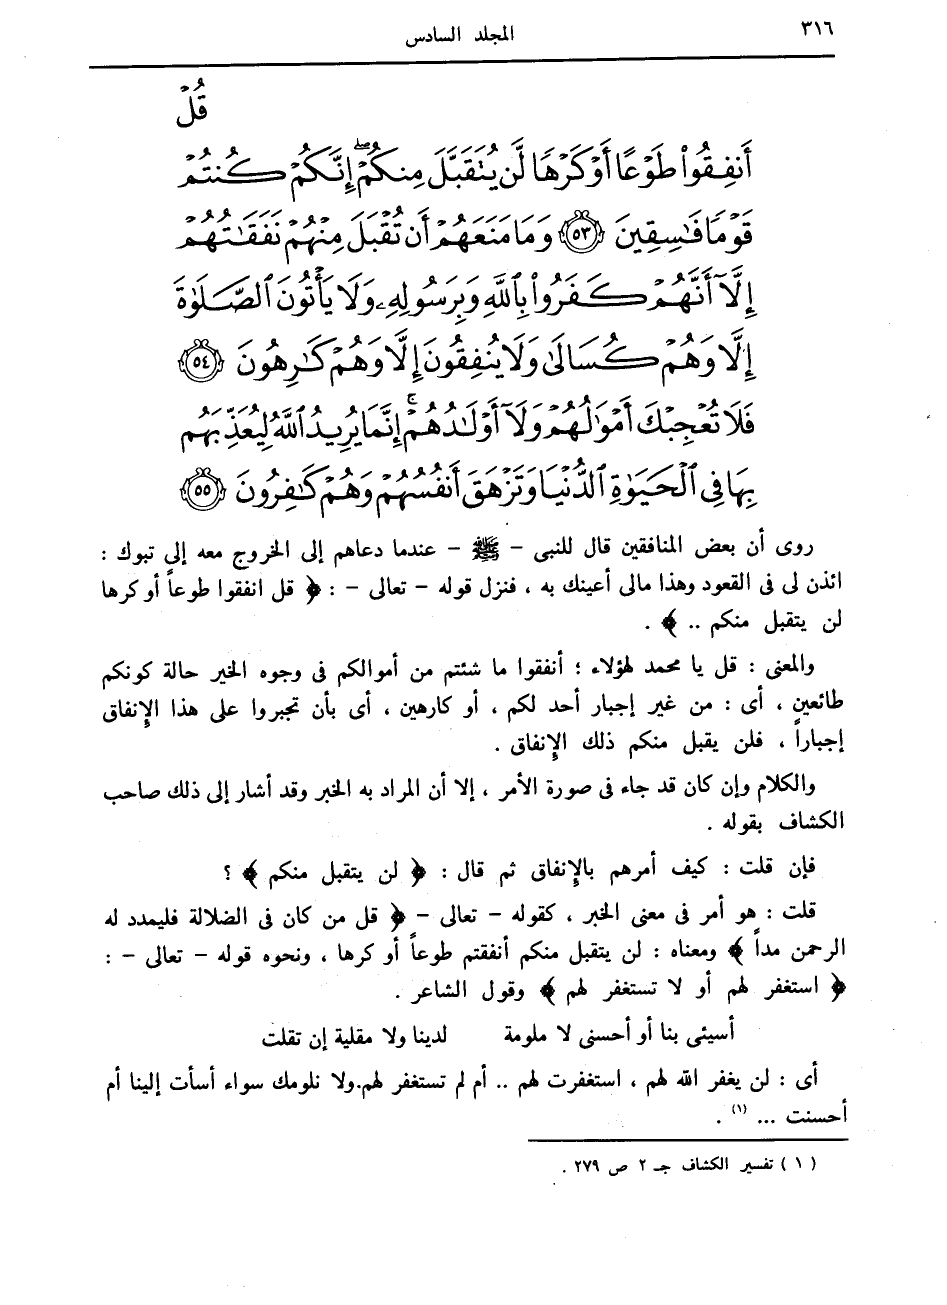 ٣١٦
المجلد السادس
قُلْ
أَنفِقُوا۟ طَوْعًا أَوْ كَرْهًا لَّن يُتَقَبَّلَ مِنكُمْ ۖ إِنَّكُمْ كُنتُمْ
قَوْمًا فَـٰسِقِينَ ﴿٥٣﴾ وَمَا مَنَعَهُمْ أَن تُقْبَلَ مِنْهُمْ نَفَقَـٰتُهُمْ
إِلَّآ أَنَّهُمْ كَفَرُوا۟ بِٱللَّهِ وَبِرَسُولِهِۦ وَلَا يَأْتُونَ ٱلصَّلَوٰةَ
إِلَّا وَهُمْ كُسَالَىٰ وَلَا يُنفِقُونَ إِلَّا وَهُمْ كَـٰرِهُونَ ﴿٥٤﴾
فَلَا تُعْجِبْكَ أَمْوَٰلُهُمْ وَلَآ أَوْلَـٰدُهُمْ ۚ إِنَّمَا يُرِيدُ ٱللَّهُ لِيُعَذِّبَهُم
بِهَا فِى ٱلْحَيَوٰةِ ٱلدُّنْيَا وَتَزْهَقَ أَنفُسُهُمْ وَهُمْ كَـٰفِرُونَ ﴿٥٥﴾
روى أن بعض المنافقين قال للنبى - ﷺ - عندما دعاهم إلى الخروج معه إلى تبوك :
ائذن لى فى القعود وهذا مالى أعينك به ، فنزل قوله - تعالى - : ﴿ قل انفقوا طوعاً أو كرها
لن يتقبل منكم .. ﴾ .
والمعنى : قل يا محمد لهؤلاء ؛ أنفقوا ما شئتم من أموالكم فى وجوه الخير حالة كونكم
طائعين ، أى : من غير إجبار أحد لكم ، أو كارهين ، أى بأن تجبروا على هذا الإنفاق
إجباراً ، فلن يقبل منكم ذلك الإنفاق .
والكلام وإن كان قد جاء فى صورة الأمر ، إلا أن المراد به الخبر وقد أشار إلى ذلك صاحب
الكشاف بقوله .
فإن قلت : كيف أمرهم بالإنفاق ثم قال : ﴿ لن يتقبل منكم ﴾ ؟
قلت : هو أمر فى معنى الخبر ، كقوله - تعالى - ﴿ قل من كان فى الضلالة فليمدد له
الرحمن مداً ﴾ ومعناه : لن يتقبل منكم أنفقتم طوعاً أو كرها ، ونحوه قوله - تعالى - :
﴿ استغفر لهم أو لا تستغفر لهم ﴾ وقول الشاعر .
أسيئى بنا أو أحسنى لا ملومة لدينا ولا مقلية إن تقلت
أى : لن يغفر الله لهم ، استغفرت لهم .. أم لم تستغفر لهم.ولا نلومك سواء أسأت إلينا أم
أحسنت ... (١) .
( ١ ) تفسير الكشاف جـ ٢ ص ٢٧٩ .